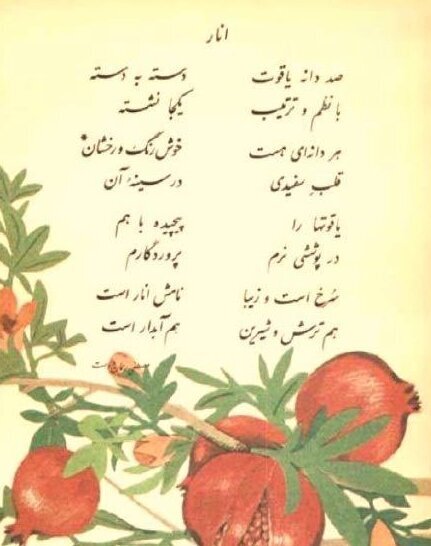 انار
صد دانه یاقوت دسته به دسته
با نظم و ترتیب یکجا نشسته
هر دانه‌ای هست خوش رنگ و رخشان*
قلب سفیدی در سینهٔ آن
یاقوتها را پیچیده با هم
در پوششی نرم پروردگارم
سُرخ است و زیبا نامش انار است
هم ترش و شیرین هم آبدار است